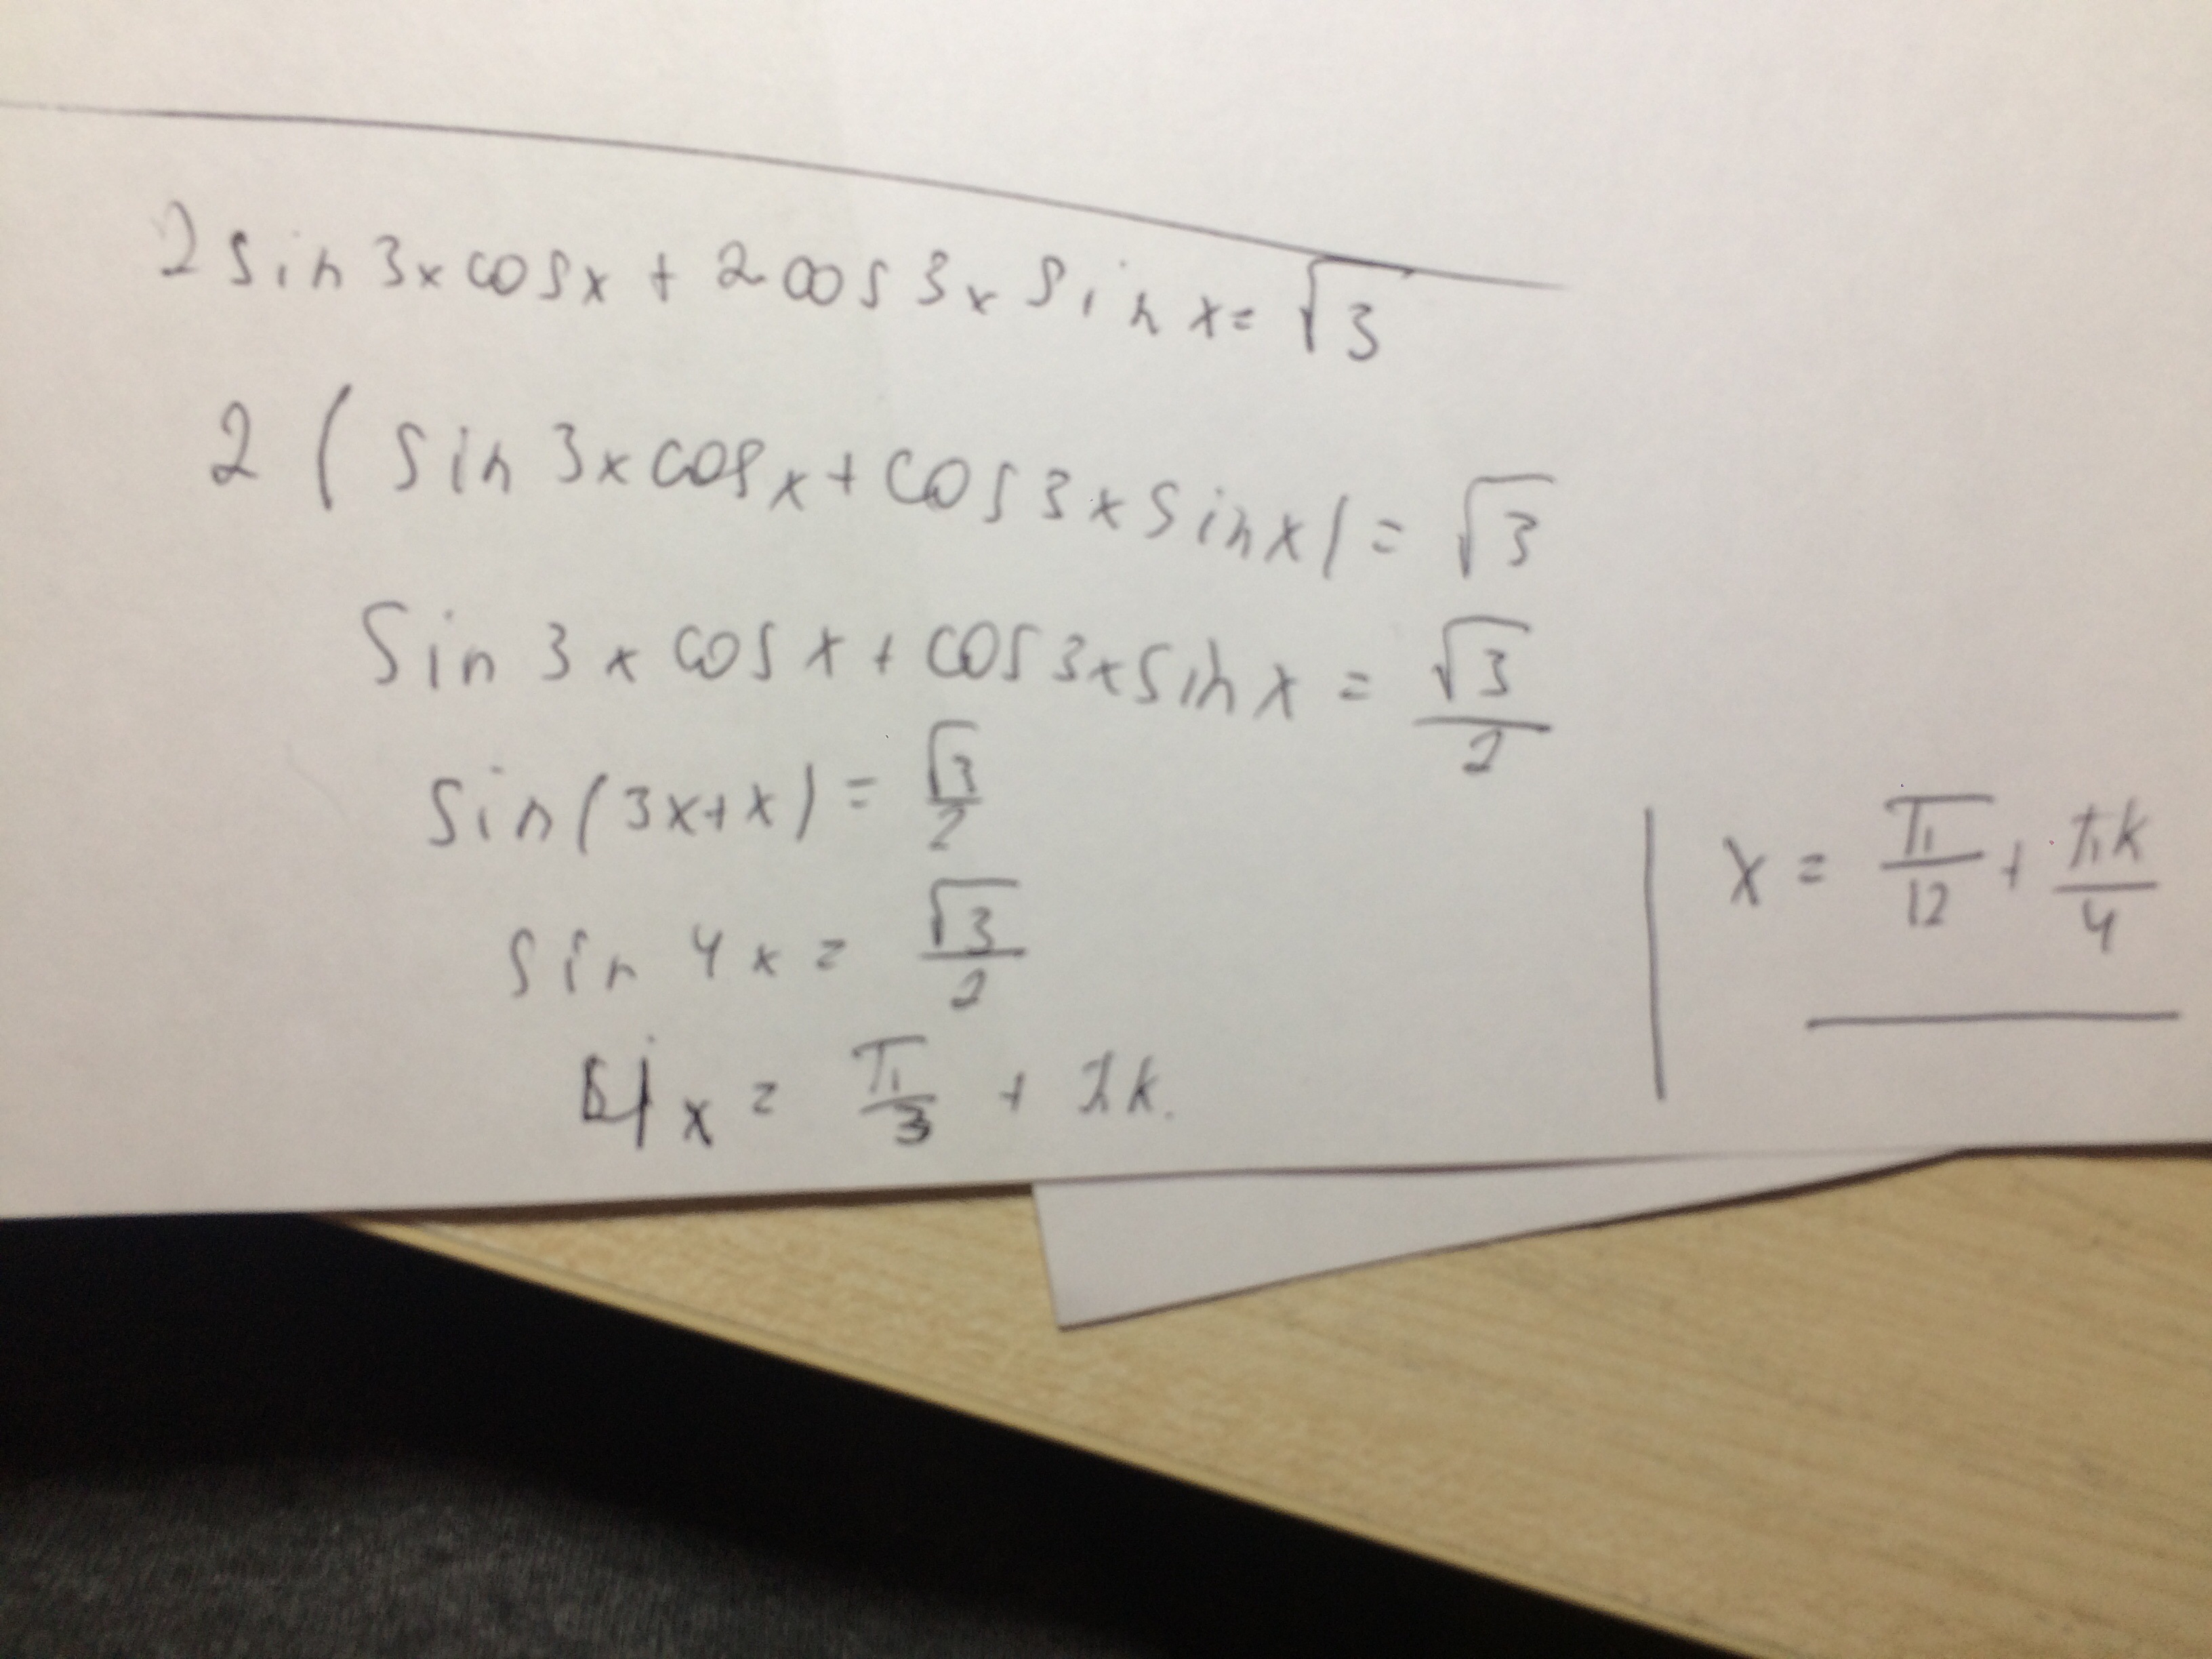 2 sin 3x cos x + 2 cos 3x sin x = √3
2 ( sin 3x cos x + cos 3x sin x ) = √3
sin 3x cos x + cos 3x sin x = √3/2
sin ( 3x + x ) = √3/2
sin 4x = √3/2
4x = π/3 + πk.
x = π/12 + πk/4